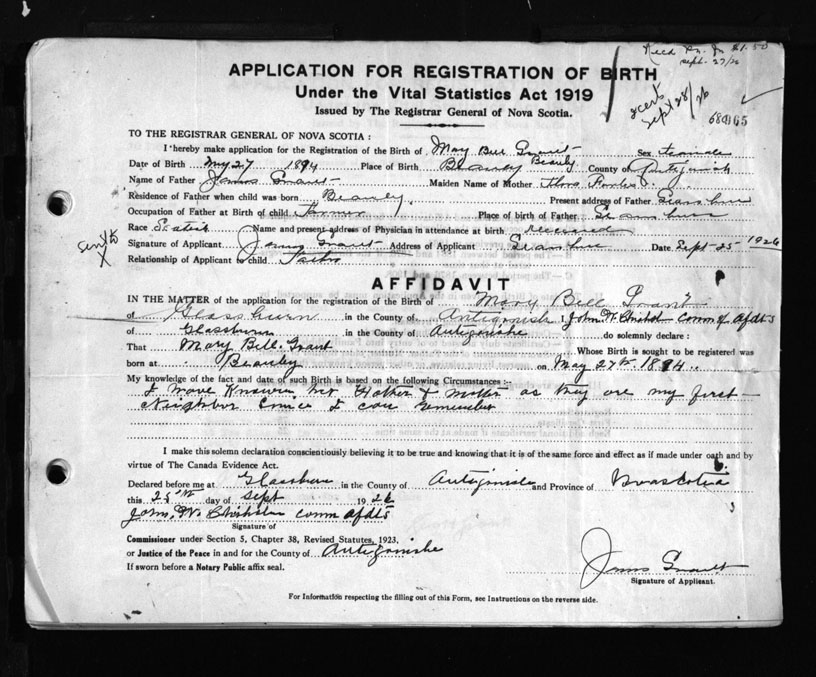 Recd $1.50
Sept. 27/26
APPLICATION FOR REGISTRATION OF BIRTH
Under the Vital Statistics Act 1919
Issued by The Registrar General of Nova Scotia.
2 cert Sept 28/26
TO THE REGISTRAR GENERAL OF NOVA SCOTIA :
I hereby make application for the Registration of the Birth of Mary Bell Grant Sex female
Date of Birth May 27 1894 Place of Birth Beauly Beauly County of Antigonish
Name of Father James Grant Maiden Name of Mother Flora Forbes
Residence of Father when child was born Beauly Present address of Father Glassburn
Occupation of Father at Birth of child Farmer Place of birth of Father Glassburn
Race Scotch Name and present address of Physician in attendance at birth Deceased
Signature of Applicant James Grant Address of Applicant Glassburn Date Sept 25 1926
Relationship of Applicant to child Father
AFFIDAVIT
IN THE MATTER of the application for the registration of the Birth of Mary Bell Grant
of Glassburn in the County of Antigonish I John W Chisholm Comm of Afdts
of Glassburn in the County of Antigonishe do solemnly declare :
That Mary Bell Grant Whose Birth is sought to be registered was
born at Beauly on May 27th 1894
My knowledge of the fact and date of such Birth is based on the following Circumstances :-
I have Known her Father & mother as they are my first
Neighbor since I can remember
I make this solemn declaration conscientiously believing it to be true and knowing that it is of the same force and effect as if made under oath and by
virtue of The Canada Evidence Act.
Declared before me at Glassburn in the County of Antigonishe and Province of Nova Scotia
this 25th day of Sept 1926
John, W. Chisholm Comm Afdts
Signature of
Commissioner under Section 5, Chapter 38, Revised Statutes, 1923,
or Justice of the Peace in and for the County of Antigonishe
If sworn before a Notary Public affix seal.
James Grant
Signature of Applicant.
For Information respecting the filling out of this Form, see Instructions on the reverse side.